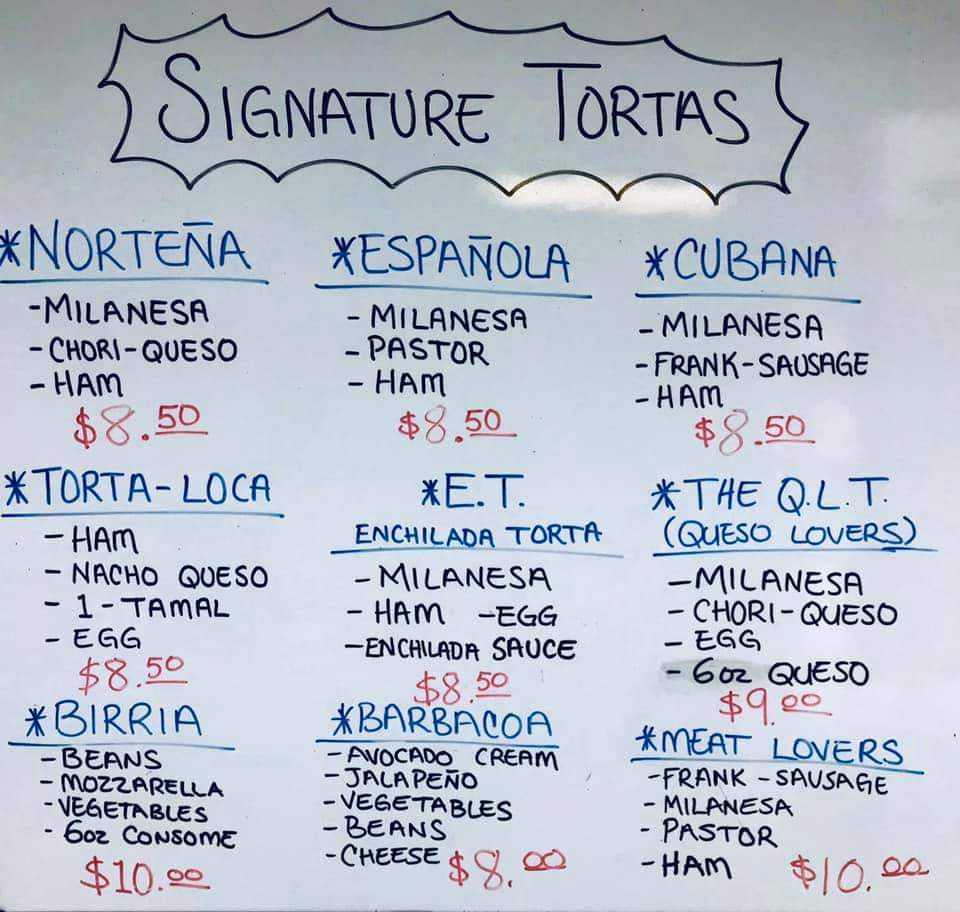 SIGNATURE TORTAS
*NORTEÑA
-MILANESA
-CHORI-QUESO
-HAM
$8.50
*ESPAÑOLA
-MILANESA
-PASTOR
-HAM
$8.50
*CUBANA
-MILANESA
-FRANK-SAUSAGE
-HAM
$8.50
*TORTA-LOCA
-HAM
-NACHO QUESO
-1-TAMAL
-EGG
$8.50
*E.T.
ENCHILADA TORTA
-MILANESA
-HAM -EGG
-ENCHILADA SAUCE
$8.50
*THE Q.L.T.
(QUESO LOVERS)
-MILANESA
-CHORI-QUESO
-EGG
-6oz QUESO
$9.00
*BIRRIA
-BEANS
-MOZZARELLA
-VEGETABLES
-6oz CONSOME
$10.00
*BARBACOA
-AVOCADO CREAM
-JALAPEÑO
-VEGETABLES
-BEANS
-CHEESE $8.00
*MEAT LOVERS
-FRANK-SAUSAGE
-MILANESA
-PASTOR
-HAM $10.00